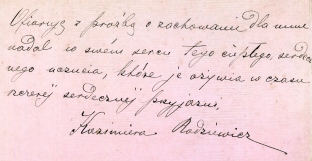 Ofiaruję z prośbą o zachowanie dla mnie
nadal w swém sercu tego ciepłego, serdecz
nego uczucia, które je ożywia w czasu
szczeréj serdecznéj przyjaźni.
Kazimiera Radziewicz